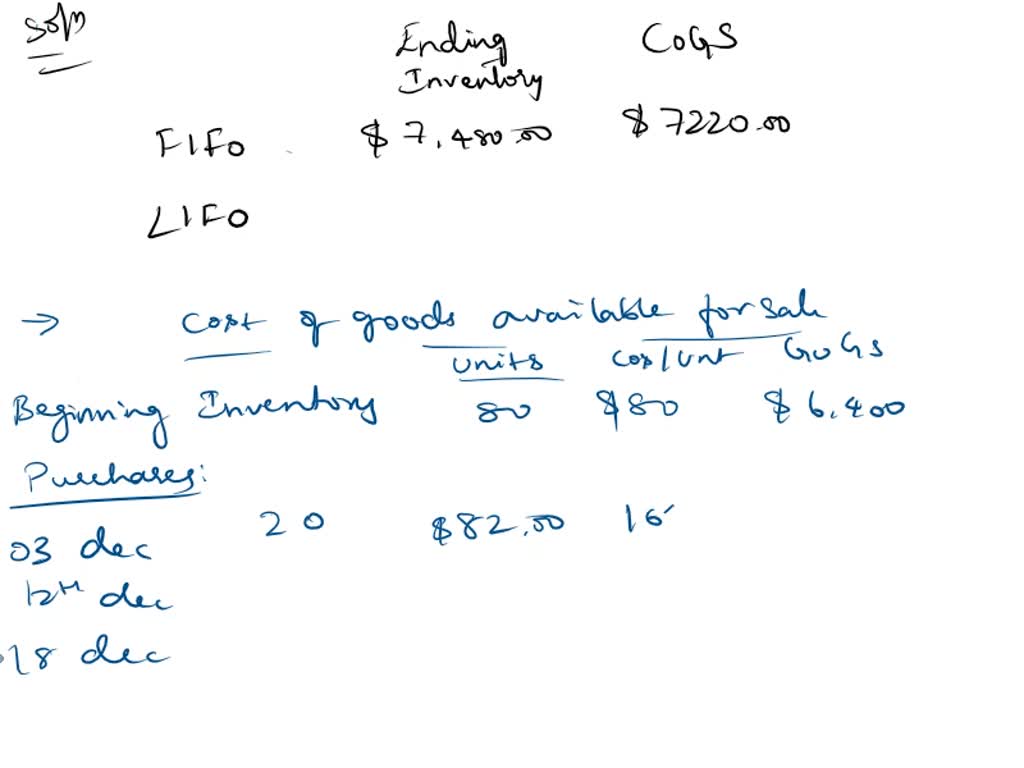 Soln
Ending Inventory COGS
FIFO $ 7,480.00 $ 7220.00
LIFO
→ Cost of goods available for sale
units Cos/Unt GOGS
Beginning Inventory 80 $80 $ 6,400
Purchases:
03 dec 20 $82.00 16
12th dec
18 dec